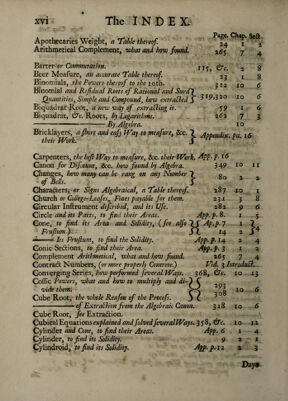 xvi The INDEX.
Page. Chap. Sect.
Apothecaries Weight, a Table thereof. 24 1 2
Arithmetical Complement, what and how found. 265 7 4
Barter or Commutation. 115, &c. 2 8
Beer Measure, an accurate Table thereof. 23 1 8
Binomials, the Powers thereof to the 10th. 322 10 6
Binomial and Residual Roots of Rational and Surd
Quantities, Simple and Compound, how extracted } 319,320 10 6
Biquadrat Root, a new way of extracting it. 59 1 6
Biquadrat, &c. Roots, by Logarithms. 262 7 3
By Algebra. 10
Bricklayers, a short and easy Way to measure, &c.
their Work. } Appendix. pa. 16
Carpenters, the best Way to measure, &c. their Work. App. p. 16
Canon for Discount, &c. how found by Algebra. 349 10 11
Changes, how many can be rang on any Number
of Bells. } 80 2 2
Characters, or Signs Algebraical, a Table thereof. 287 10 1
Church or College-Leases, Fines payable for them. 231 3 8
Circular Instrument described, and its Use. 282 9 6
Circle and its Parts, to find their Areas. App. p. 8. 1 5
Cone, to find its Area and Solidity, (see also } Ap. p. 7 1 7
Frustum). 14 2 3
Its Frustum, to find the Solidity. App. p. 14 2 4
Conic Sections, to find their Area. App. p. 3 4 2
Complement Arithmetical, what and how found. 265 7 4
Contract Numbers, (or more properly Concrete.) Vid. 3 Introduct.
Converging Series, how performed several Ways. 368, &c. 10 13
Cossic Powers, what and how to multiply and di-
vide them. } 293 308 10 6
Cube Root, the whole Reason of the Process.
of Extraction from the Algebraic Canon. 328 10 6
Cube Root, see Extraction.
Cubical Equations explained and solved several Ways. 358, &c. 10 12
Cylinder and Cone, to find their Areas. App. 6 1 4
Cylinder, to find its Solidity. 9 2 1
Cylindroid, to find its Solidity. App. p. 12 2 3
Days